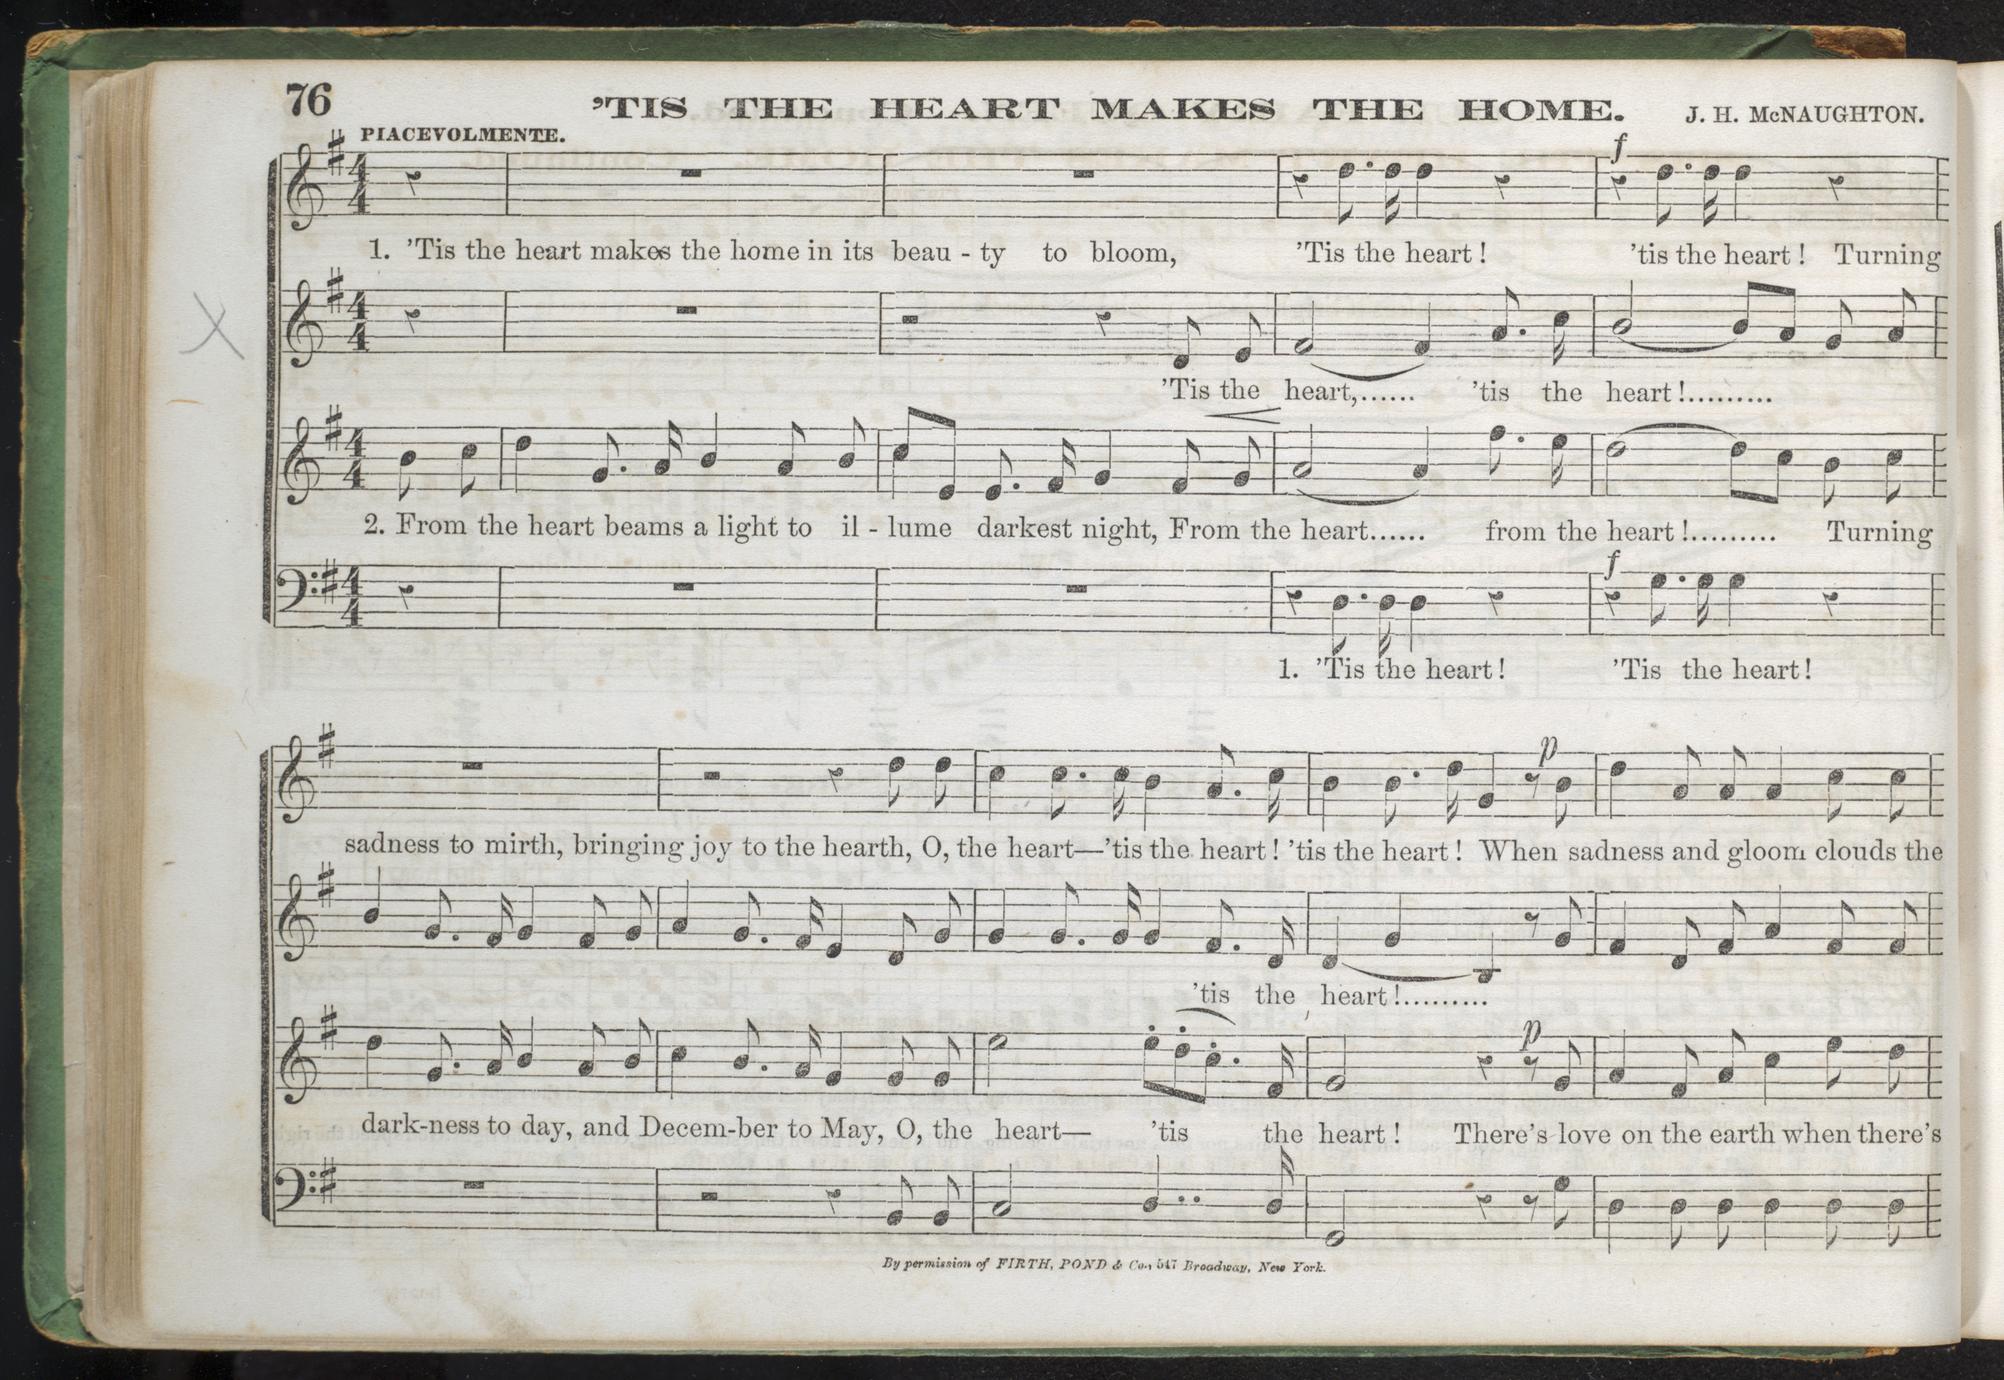 76
’TIS THE HEART MAKES THE HOME.
J. H. McNAUGHTON.
PIACEVOLMENTE.
f
1. ’Tis the heart makes the home in its beau - ty to bloom, ’Tis the heart! ’tis the heart! Turning
’Tis the heart,...... ’tis the heart!.........
2. From the heart beams a light to il - lume darkest night, From the heart...... from the heart!......... Turning
f
1. ’Tis the heart! ’Tis the heart!
p
sadness to mirth, bringing joy to the hearth, O, the heart—’tis the heart! ’tis the heart! When sadness and gloom clouds the
’tis the heart!.........
p
dark-ness to day, and Decem-ber to May, O, the heart— ’tis the heart! There’s love on the earth when there’s
By permission of FIRTH, POND & Co., 547 Broadway, New York.